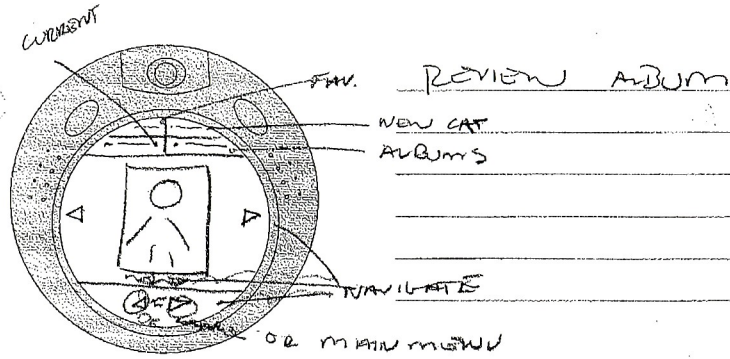 CURRENT
FAV.
REVIEW ALBUM
NEW CAT
ALBUMS
NAVIGATE
OR MAIN MENU